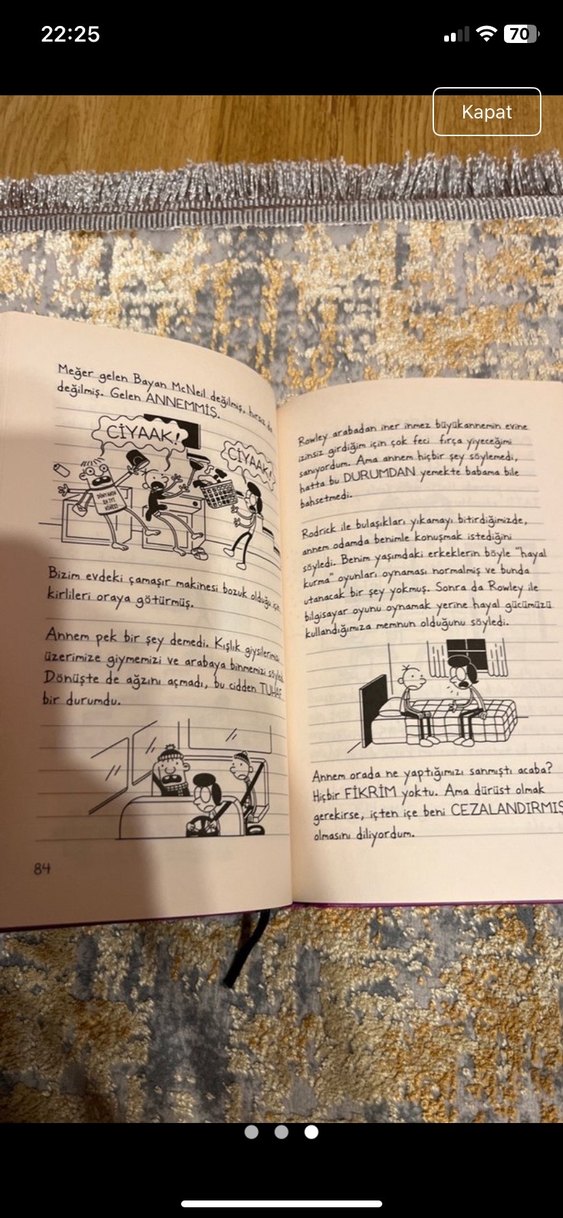 22:25
70
Kapat
Meğer gelen Bayan McNeil değilmiş, hırsız da
değilmiş. Gelen ANNEMMİŞ.
CİYAAK!
CİYAAK!
Bizim evdeki çamaşır makinesi bozuk olduğu için
kirlileri oraya götürmüş.
Annem pek bir şey demedi. Kışlık giysilerimizi
üzerimize giymemizi ve arabaya binmemizi söyledi.
Dönüşte de ağzını açmadı, bu cidden TUHAF
bir durumdu.
84
Rowley arabadan iner inmez büyükannemin evine
izinsiz girdiğim için çok feci fırça yiyeceğimi
sanıyordum. Ama annem hiçbir şey söylemedi,
hatta bu DURUMDAN yemekte babama bile
bahsetmedi.
Rodrick ile bulaşıkları yıkamayı bitirdiğimizde,
annem odamda benimle konuşmak istediğini
söyledi. Benim yaşımdaki erkeklerin böyle "hayal
kurma" oyunları oynaması normalmiş ve bunda
utanacak bir şey yokmuş. Sonra da Rowley ile
bilgisayar oyunu oynamak yerine hayal gücümüzü
kullandığımıza memnun olduğunu söyledi.
Annem orada ne yaptığımızı sanmıştı acaba?
Hiçbir FİKRİM yoktu. Ama dürüst olmak
gerekirse, içten içe beni CEZALANDIRMIŞ
olmasını diliyordum.